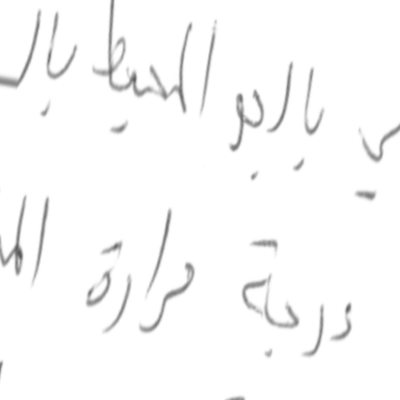 بالجو المحيط بال
درجة حرارة الم